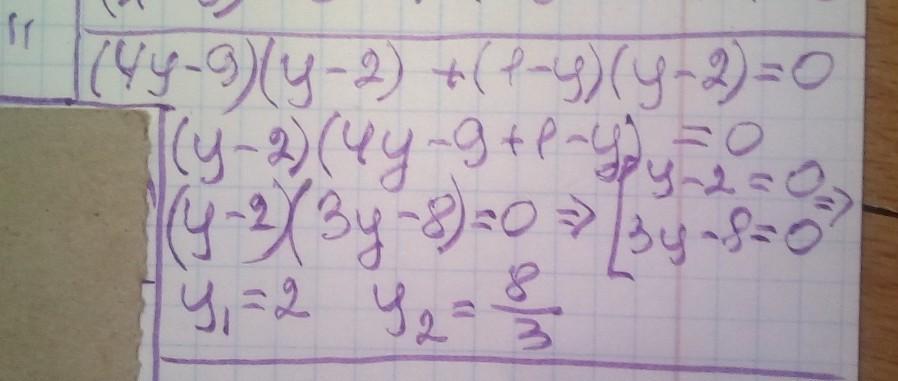 (4y-9)(y-2) +(1-y)(y-2)=0
(y-2)(4y-9+1-y) =0
(y-2)(3y-8)=0 => [y-2=0 =>
3y-8=0
y₁=2 y₂=8/3